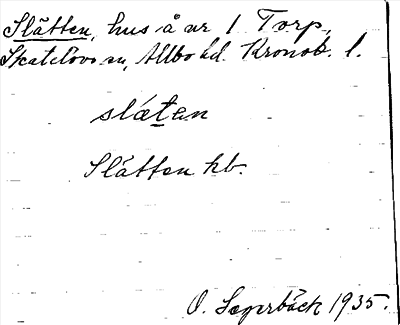 Slätten, hus å ur 1 Torp,
Skatelövs sn, Allbo hd. Kronob. l.
sláten
Slätten kb.
O. Sagerbäck 1935.